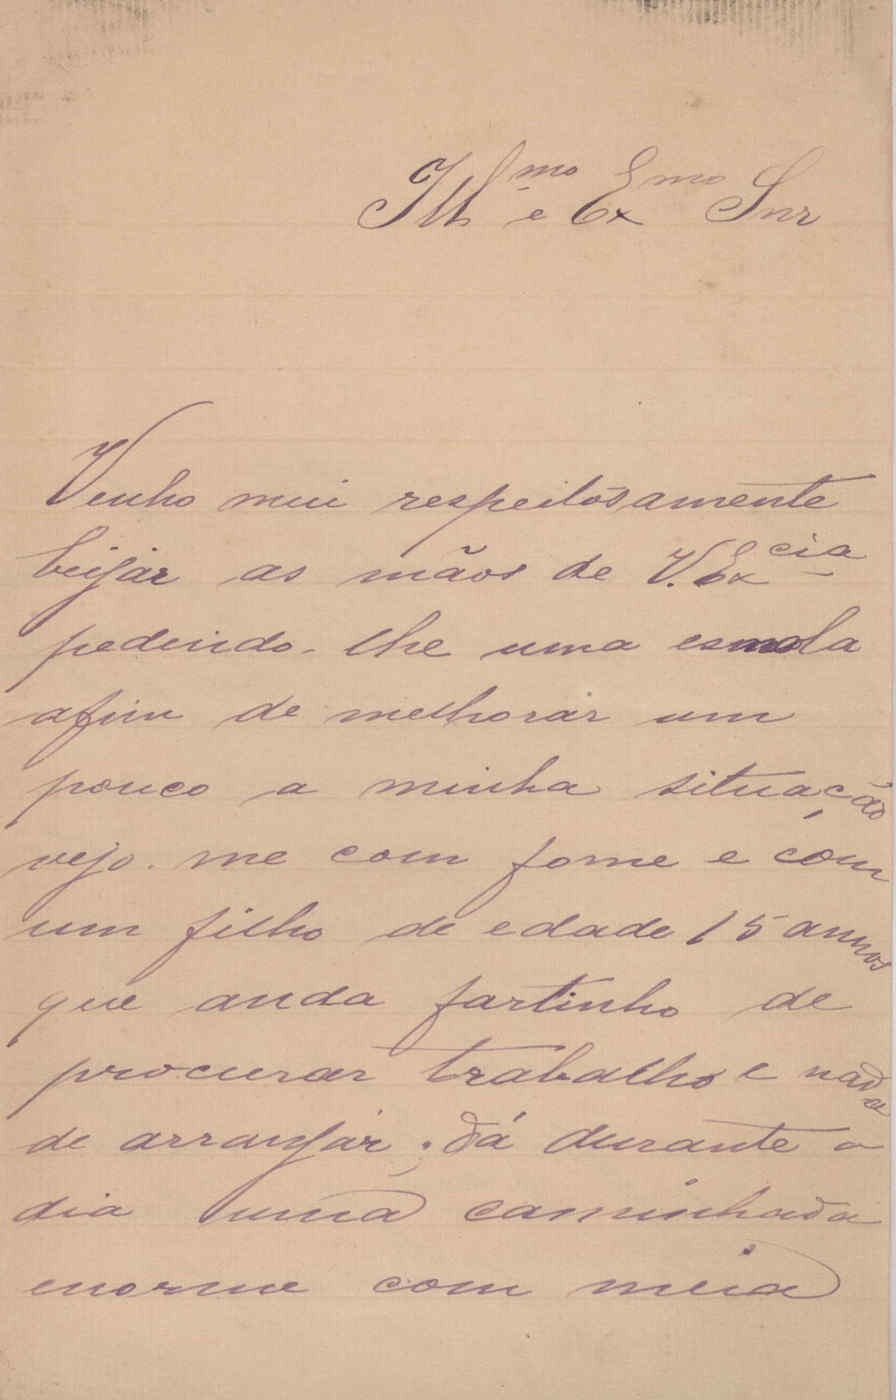 Illmo e Exmo Snr
Venho mui respeitósamente
beijar as mãos de V. Excia
pedindo-lhe uma esmola
afim de melhorar um
pouco a minha situação
vejo-me com fome e com
um filho de edade 15 annos
que anda fartinho de
procurar trabalho e nada
de arranjar; dá durante o
dia uma caminhada
enorme com meia